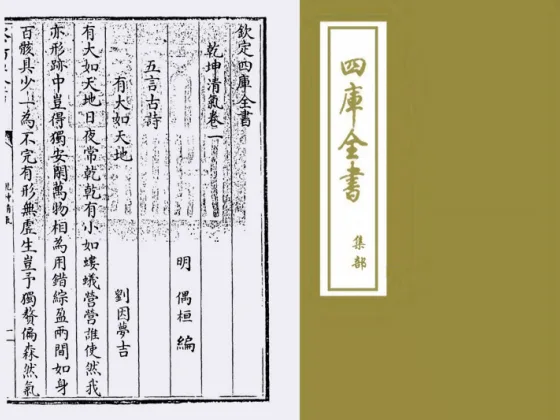 欽定四庫全書
乾坤清氣卷一
明 偶桓 編
五言古詩
有大如天地 劉因夢吉
有大如天地日夜常乾乾有小如螻蟻營營誰使然我
亦形跡中豈得獨安閑萬物相為用錯綜盈兩間如身
百骸具少一為不完有形無虛生豈予獨贅偏森然氣
四庫全書
集部